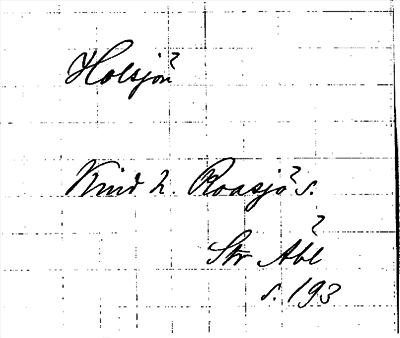 Holsjön
Kind h. Roasjö s.
Str Åbl
s. 193